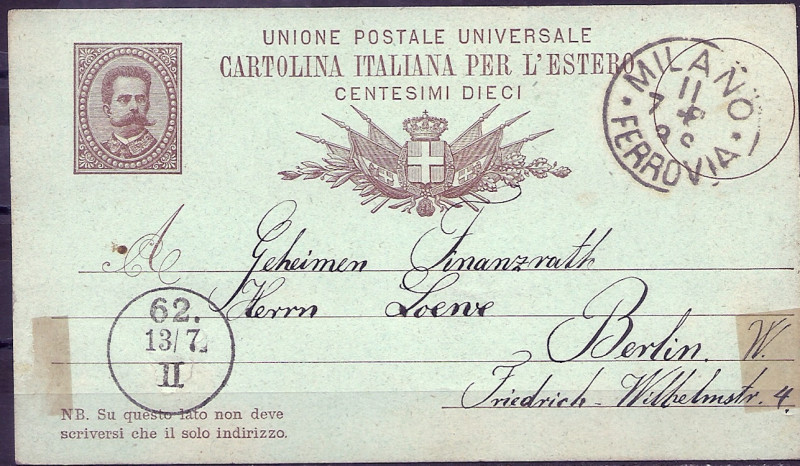 UNIONE POSTALE UNIVERSALE
CARTOLINA ITALIANA PER L'ESTERO
CENTESIMI DIECI
MILANO
11
7
FERROVIA
A
Geheimen Finanzrath
Herrn Loewe
Berlin. W.
Friedrich-Wilhelmstr. 4.
62.
13/7
II
NB. Su questo lato non deve
scriversi che il solo indirizzo.